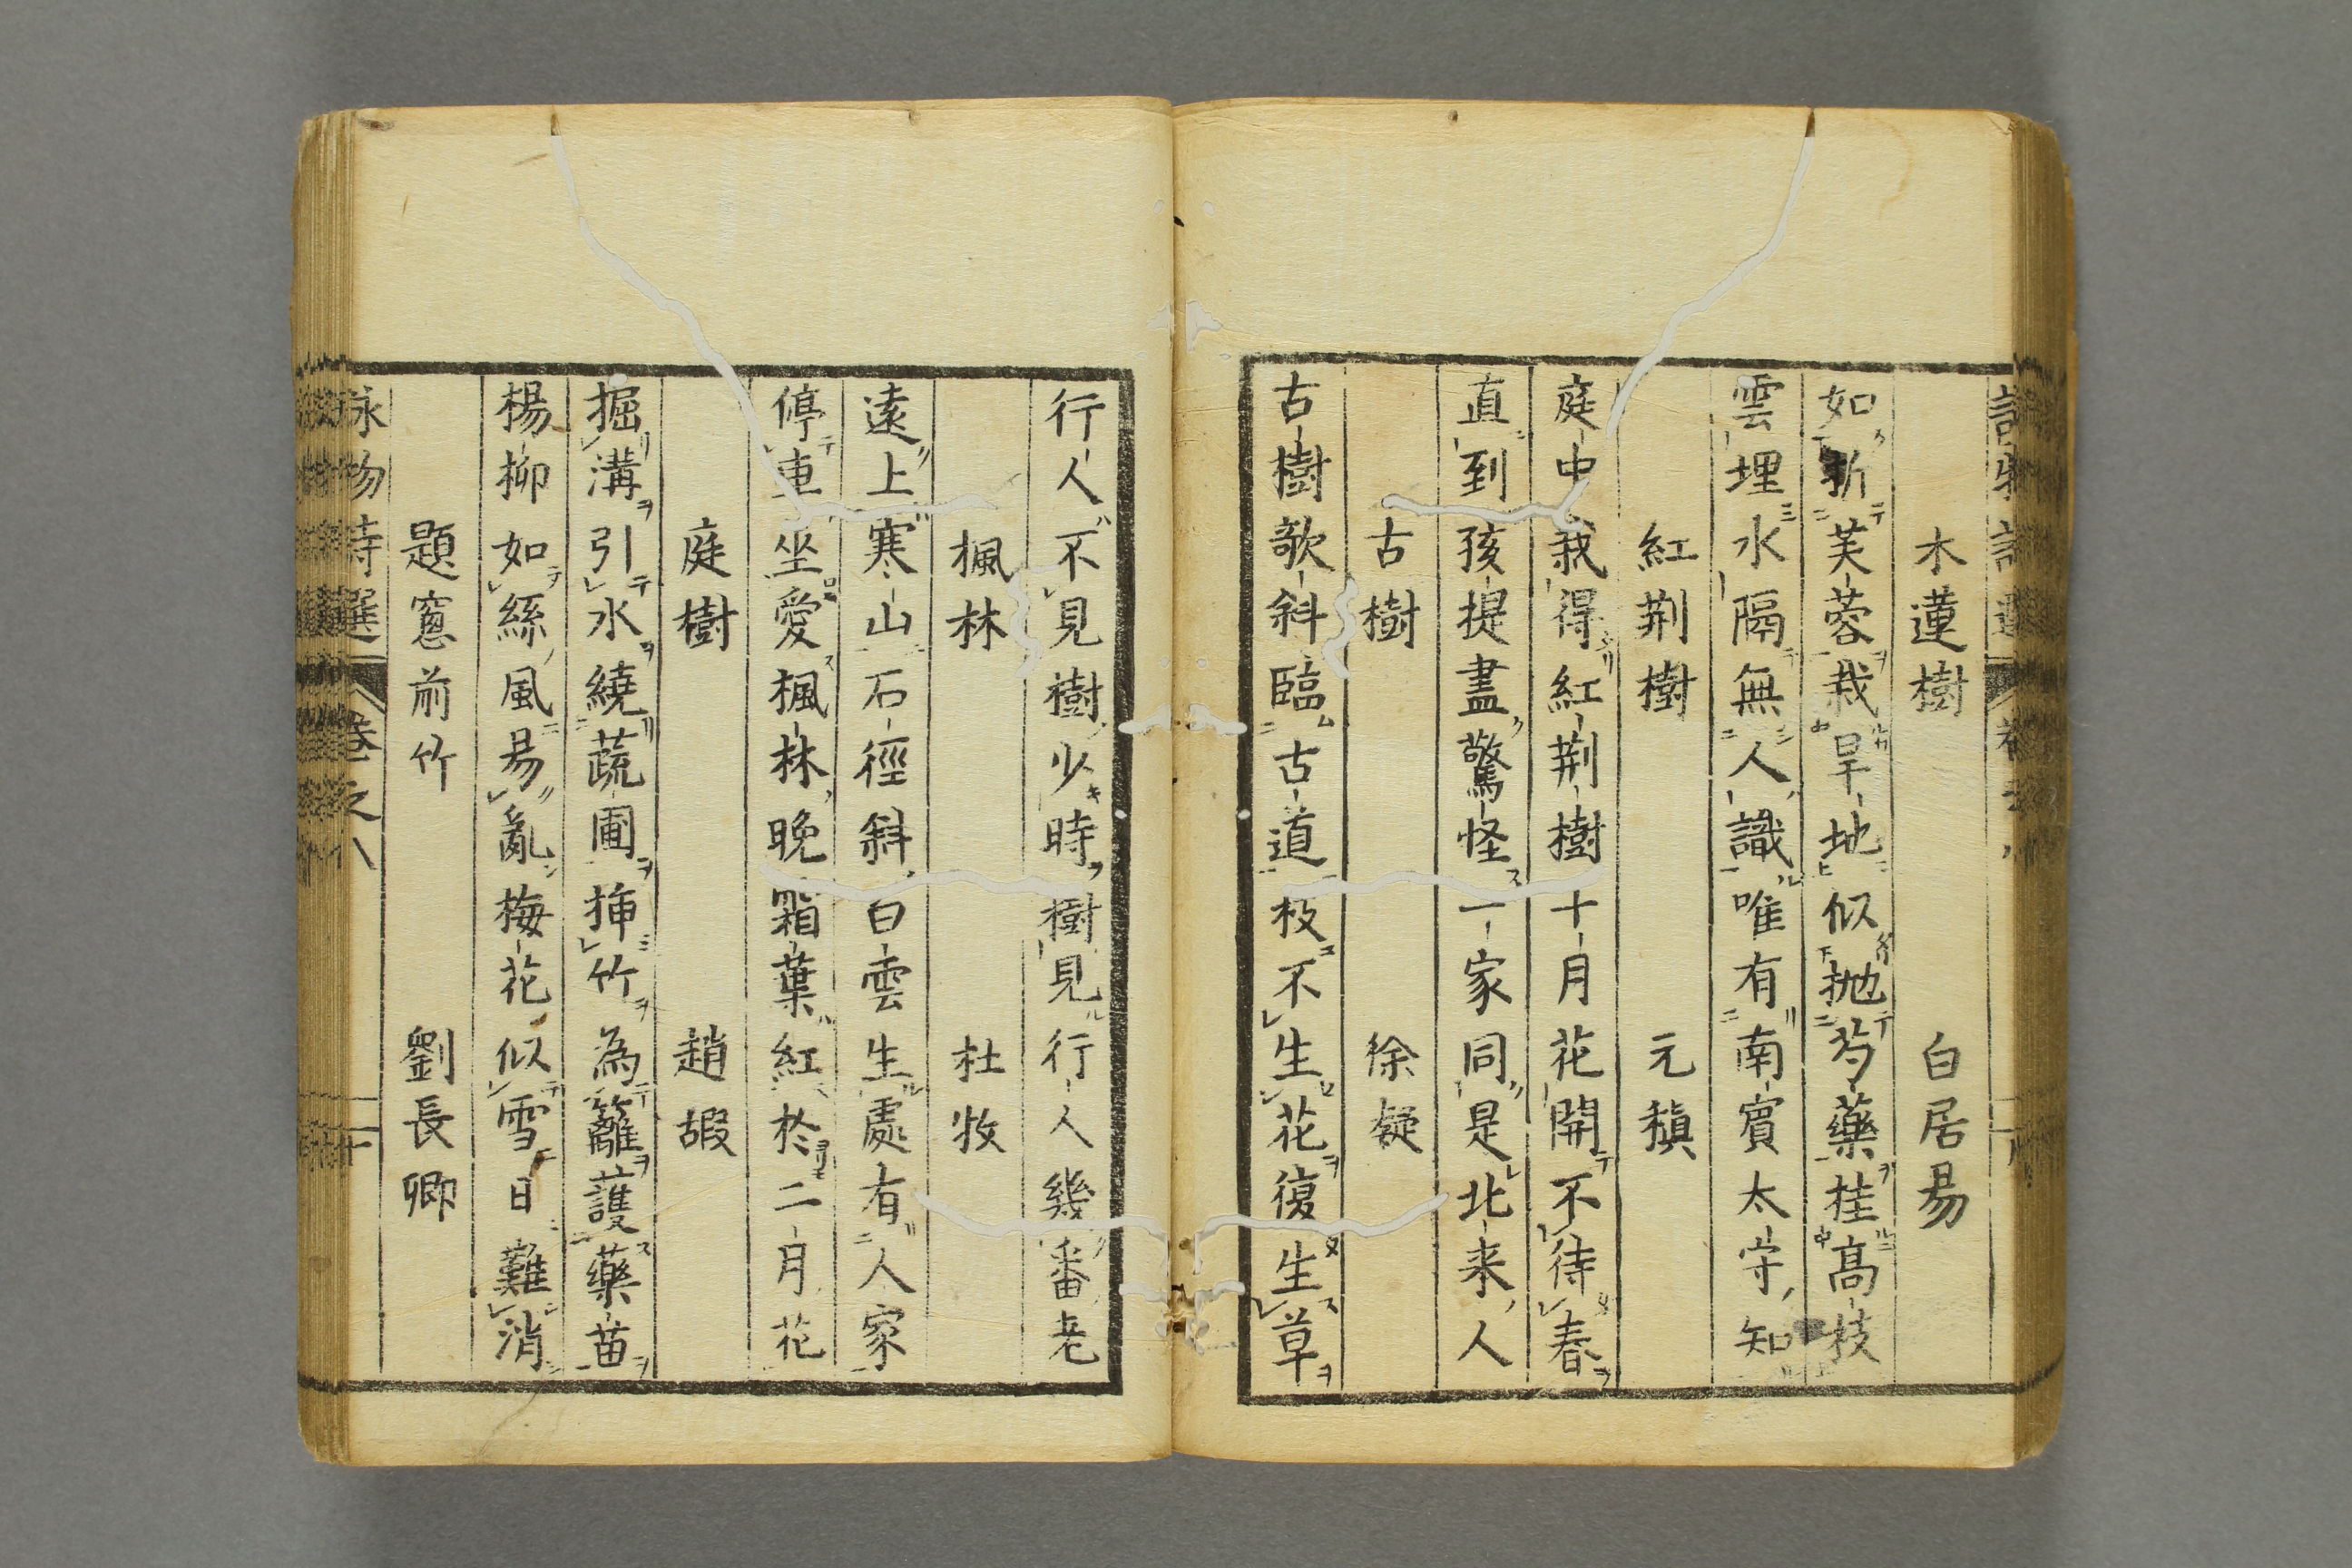 木蓮樹 白居易
如折芙蓉栽旱地似抛芍藥桂高枝
雲埋水隔無人識唯有南賓太守知
紅荆樹 元稹
庭中栽得紅荆樹十月花開不待春
直到孩提盡驚怪一家同是北来人
古樹 徐凝
古樹欹斜臨古道枝不生花復生草
行人不見樹少時樹見行人幾番老
楓林 杜牧
遠上寒山石徑斜白雲生處有人家
停車坐愛楓林晚霜葉紅於二月花
庭樹 趙嘏
掘溝引水繞蔬圃挿竹為籬護藥苗
楊柳如絲風易亂梅花似雪日難消
題窻前竹 劉長卿
詠物詩選 卷之八 十